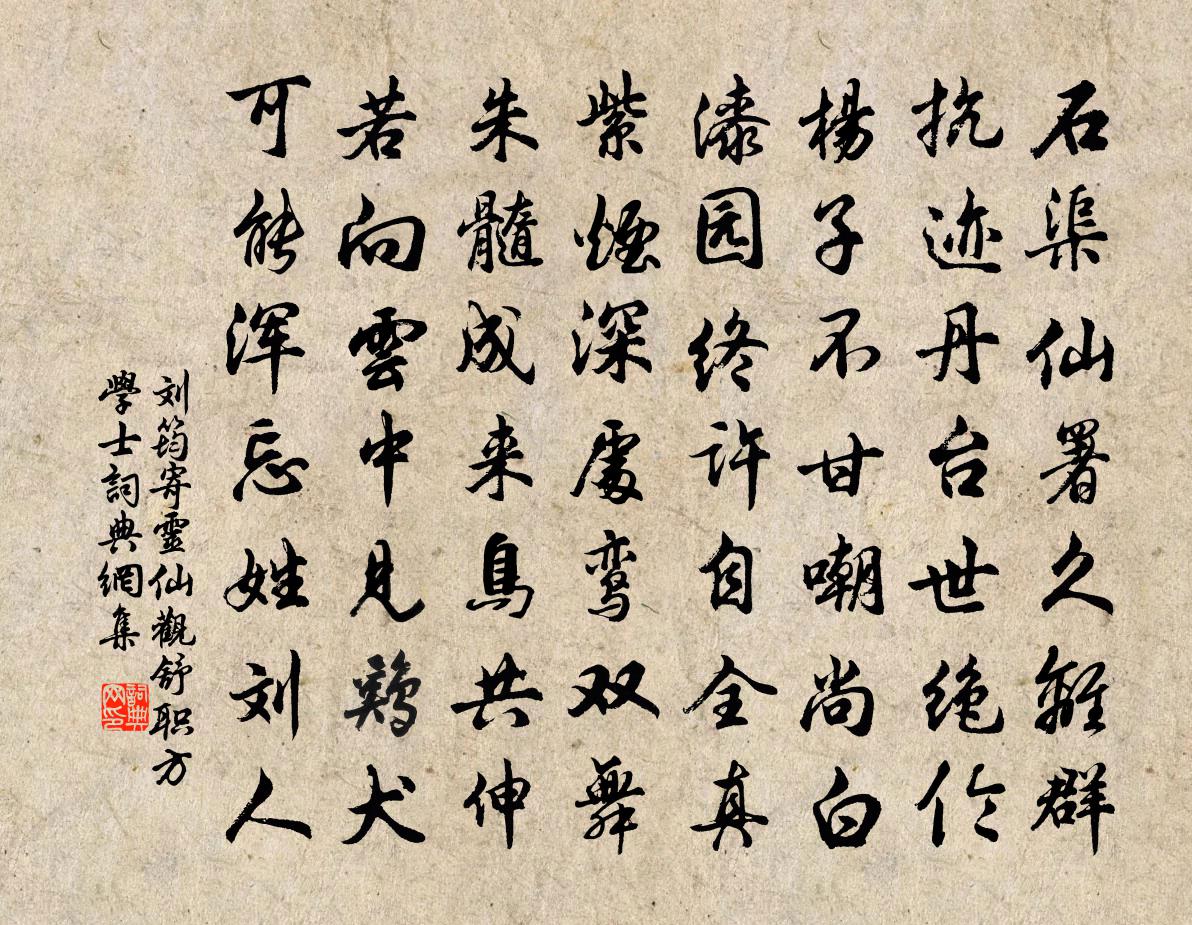 石渠仙署久離群
抗迹丹台世绝伦
楊子不甘嘲尚白
漆园终许自全真
紫煙深處鸾双舞
朱髓成来鳥共伸
若向雲中見鶏犬
可能浑忘姓刘人
刘筠寄靈仙觀舒职方
學士詞典網集
詞典网印